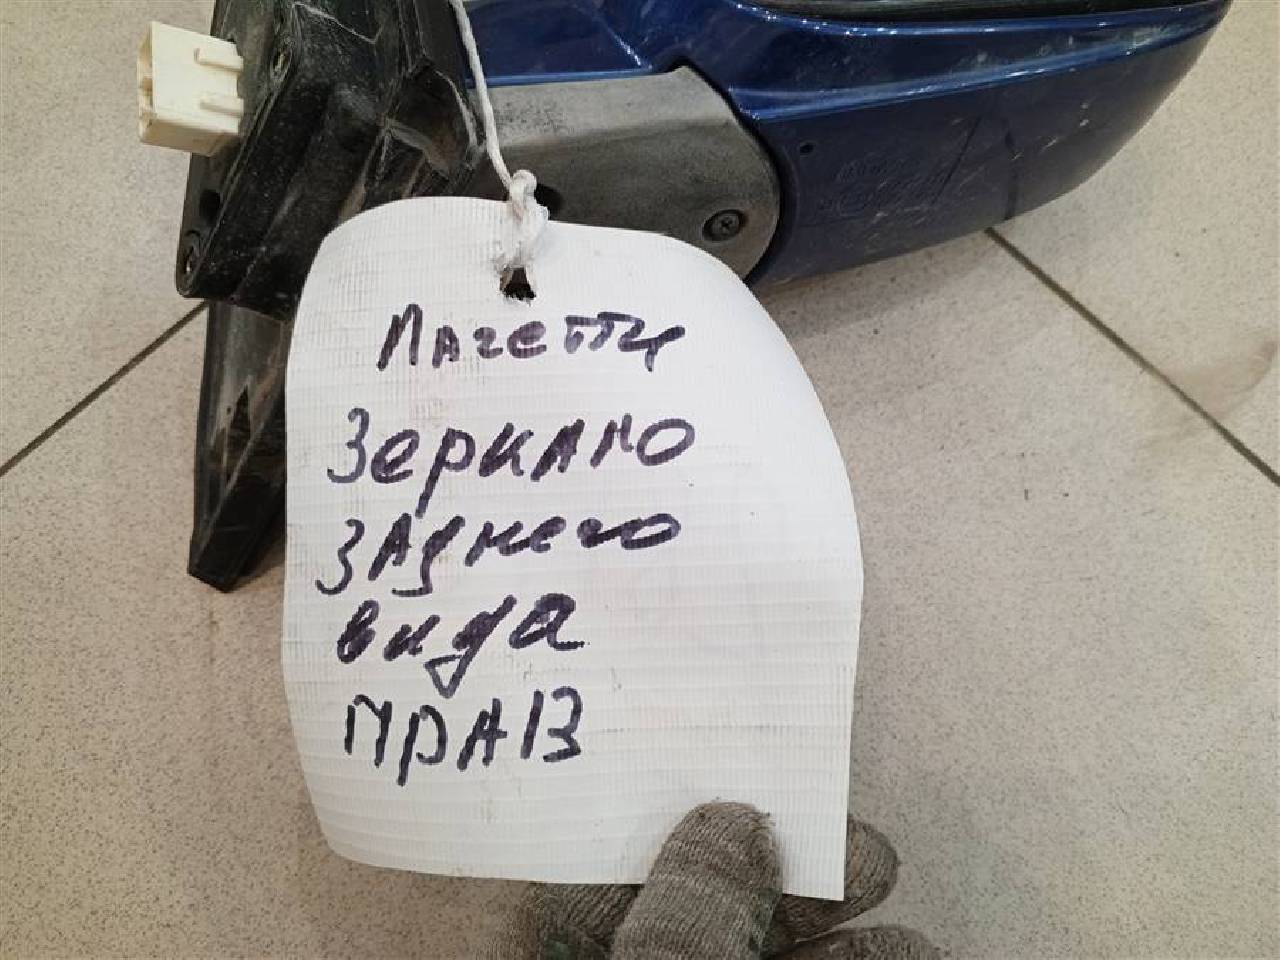 Лачетти
Зеркало
заднего
вида
ПРАВ